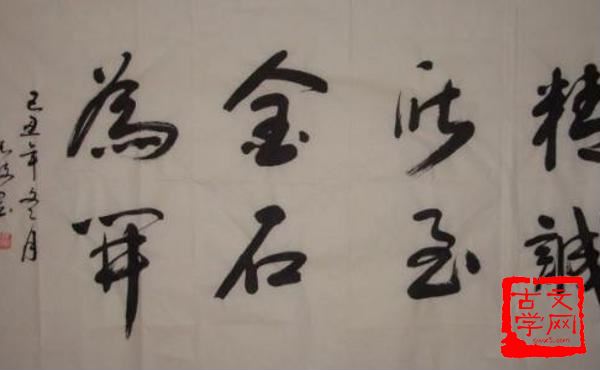 精誠
所至
金石
為開
己丑年冬月
古文学网
gwx5.com